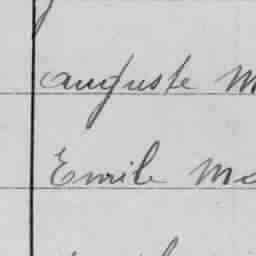 auguste M
Emile Mo